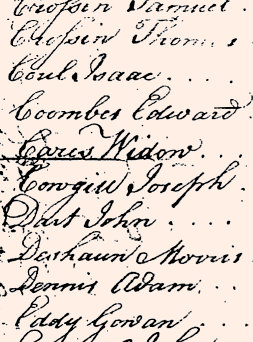 Crossin Samuel .
Crossin Thom
Coul Isaac . . . .
Coombes Edward
Cares Widow . . .
Cowgill Joseph .
Dart John . . . .
Deshaun Morris
Dennis Adam . . .
Eddy Gowan . . . .